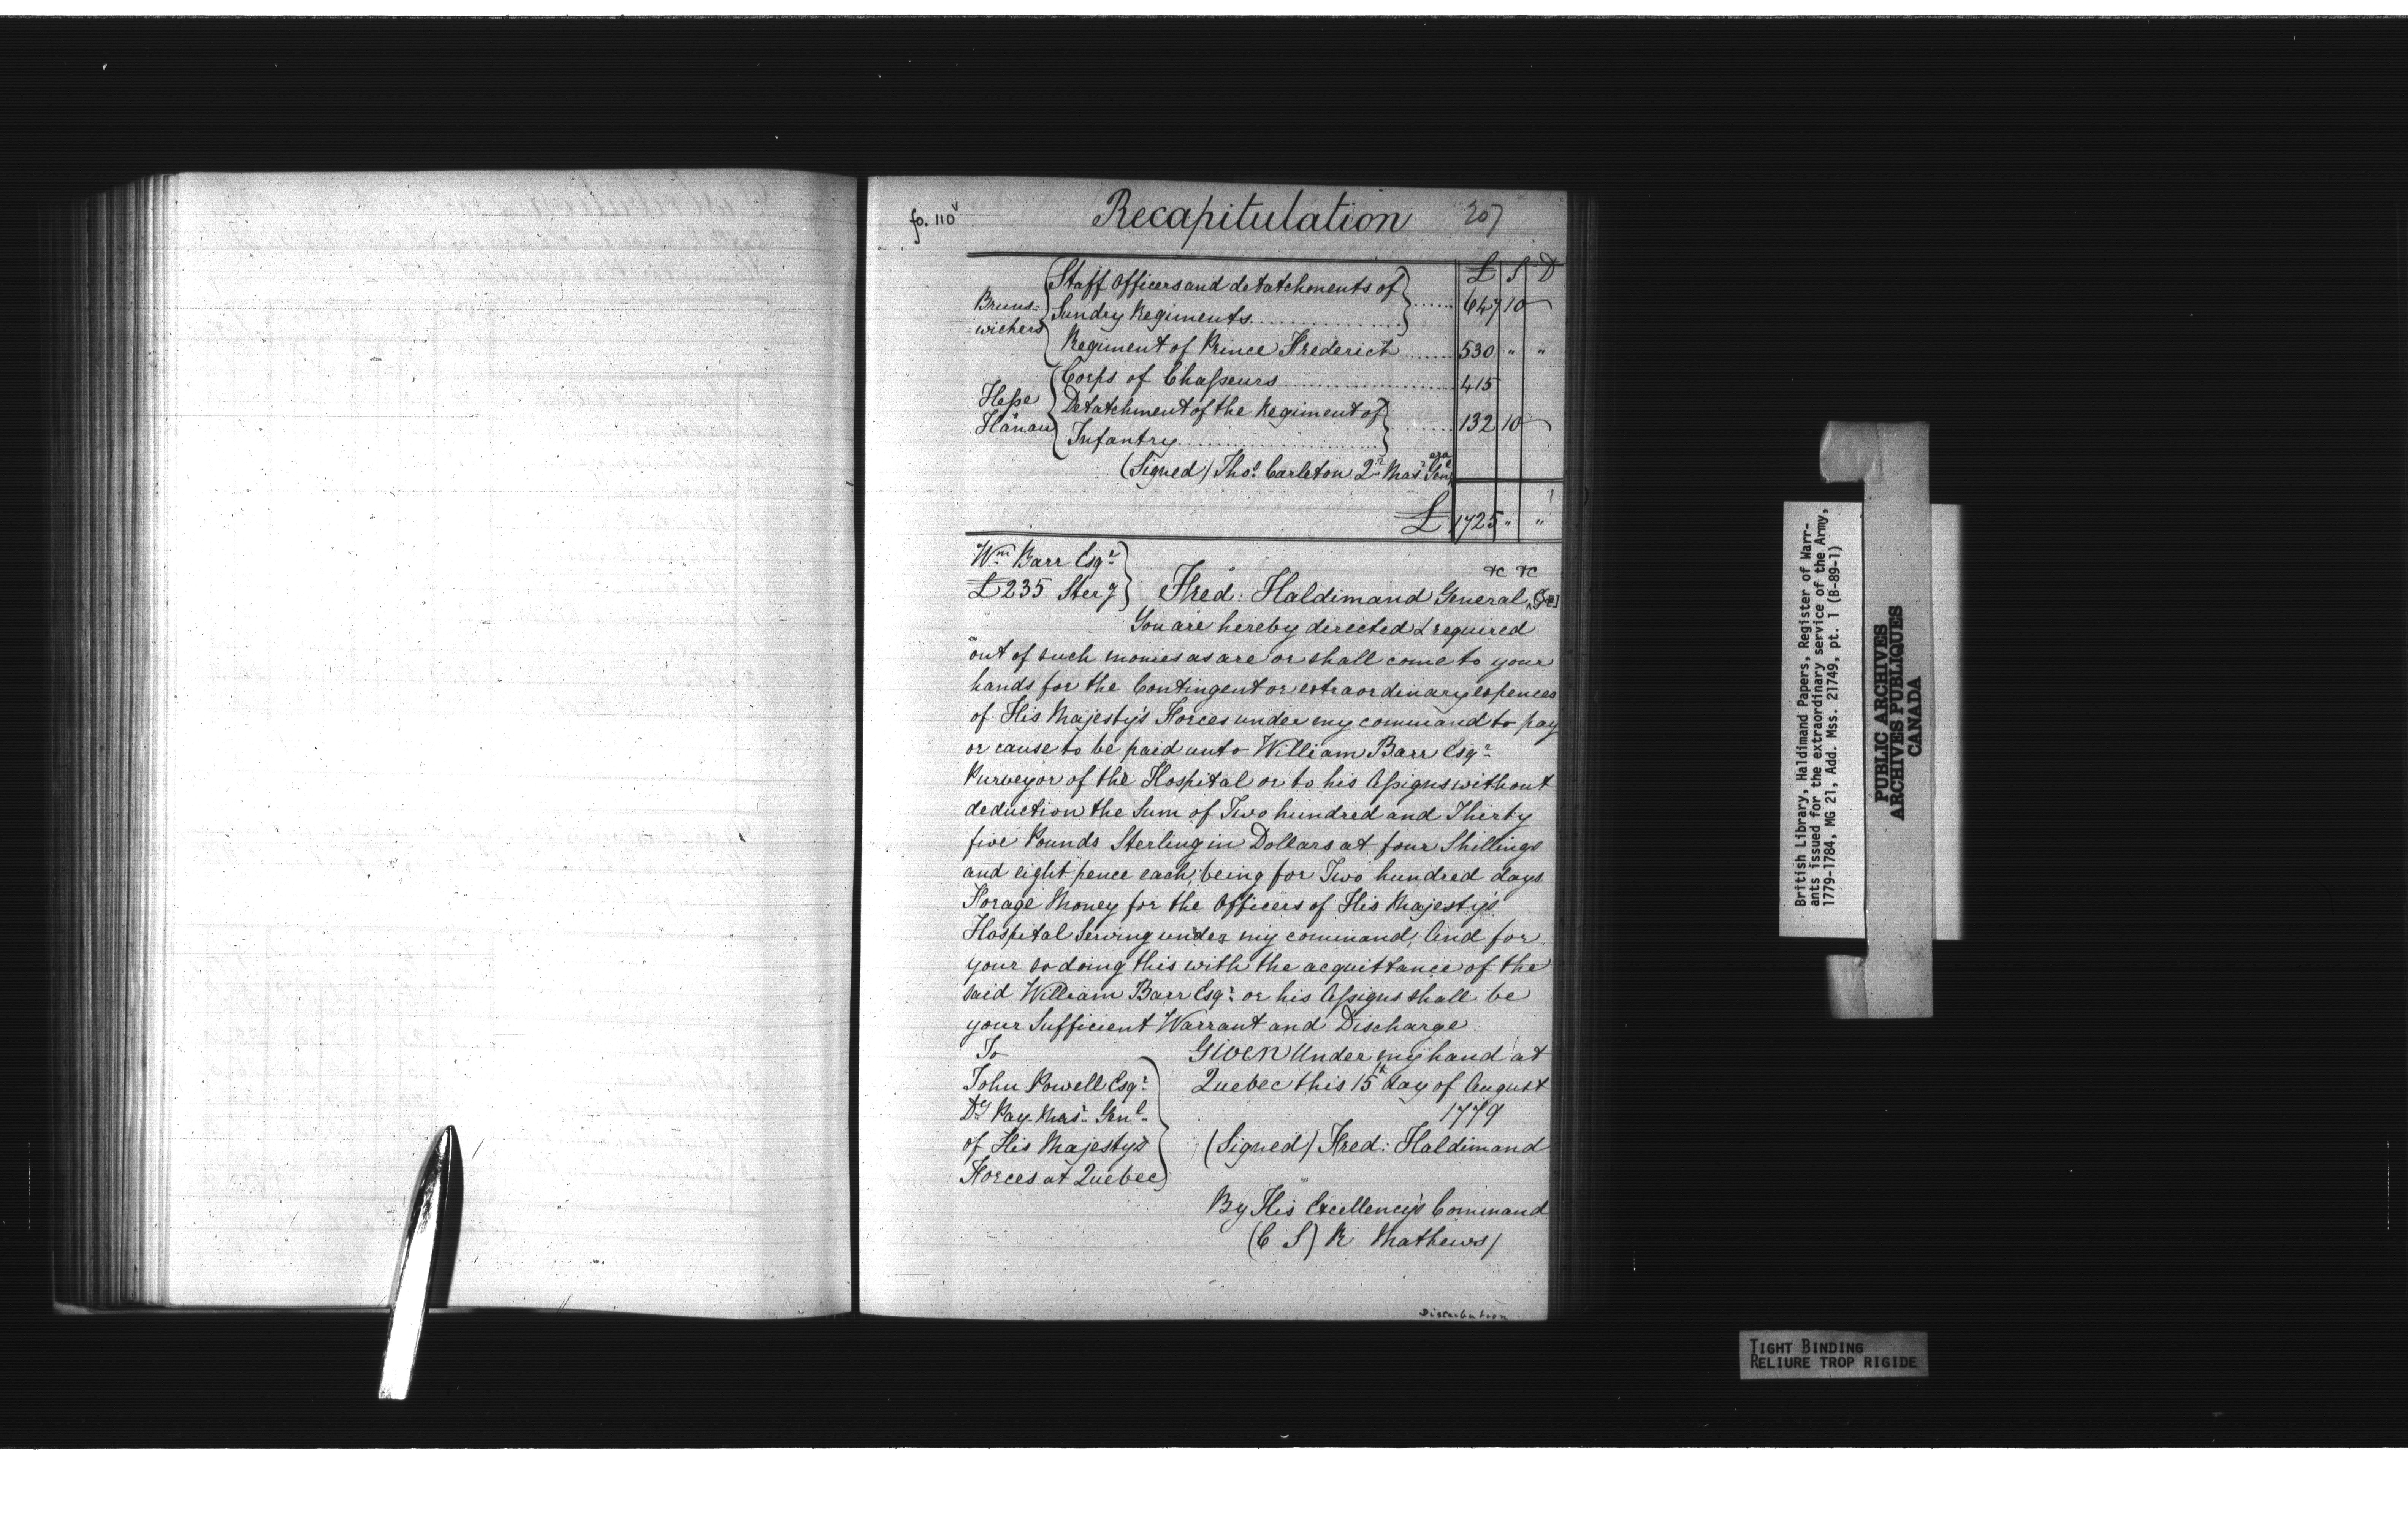 fo. 110v
Recapitulation 207
£ S D
Bruns= =wickers { Staff Officers and detatchments of
Sundry Regiments } 647 10
Regiment of Prince Frederick 530 " "
Hesse Hanau { Corps of Chasseurs 415
Detatchment of the Regiment of
Infantry } 132 10
(Signed) Thos. Carleton Qr. Masr. Genl.
£ 1725 " "
Wm Barr Esqr
£235 Sterg } Fred: Haldimand General, &c &c &c
You are hereby directed & required
out of such monies as are or shall come to your
hands for the Contingent or extraordinary expences
of His Majesty's Forces under my command to pay
or cause to be paid unto William Barr Esqr
Purveyor of the Hospital or to his Assigns without
deduction the Sum of Two hundred and Thirty
five Pounds Sterling in Dollars at four Shillings
and eight pence each, being for Two hundred days
Forage Money for the Officers of His Majesty's
Hospital Serving under my command, And for
your so doing this with the acquittance of the
said William Barr Esqr. or his Assigns shall be
your Sufficient Warrant and Discharge.
To
John Powell Esqr.
Dy Pay-Masr. Genl.
of His Majesty's
Forces at Quebec
Given Under my hand at
Quebec this 15th day of August
1779
(Signed) Fred: Haldimand
By His Excellency's Command
(C S) R Mathews/
Distribution
British Library, Haldimand Papers, Register of Warr-
ants issued for the extraordinary service of the Army,
1779-1784, MG 21, Add. Mss. 21749, pt. 1 (B-89-1)
PUBLIC ARCHIVES
ARCHIVES PUBLIQUES
CANADA
TIGHT BINDING
RELIURE TROP RIGIDE